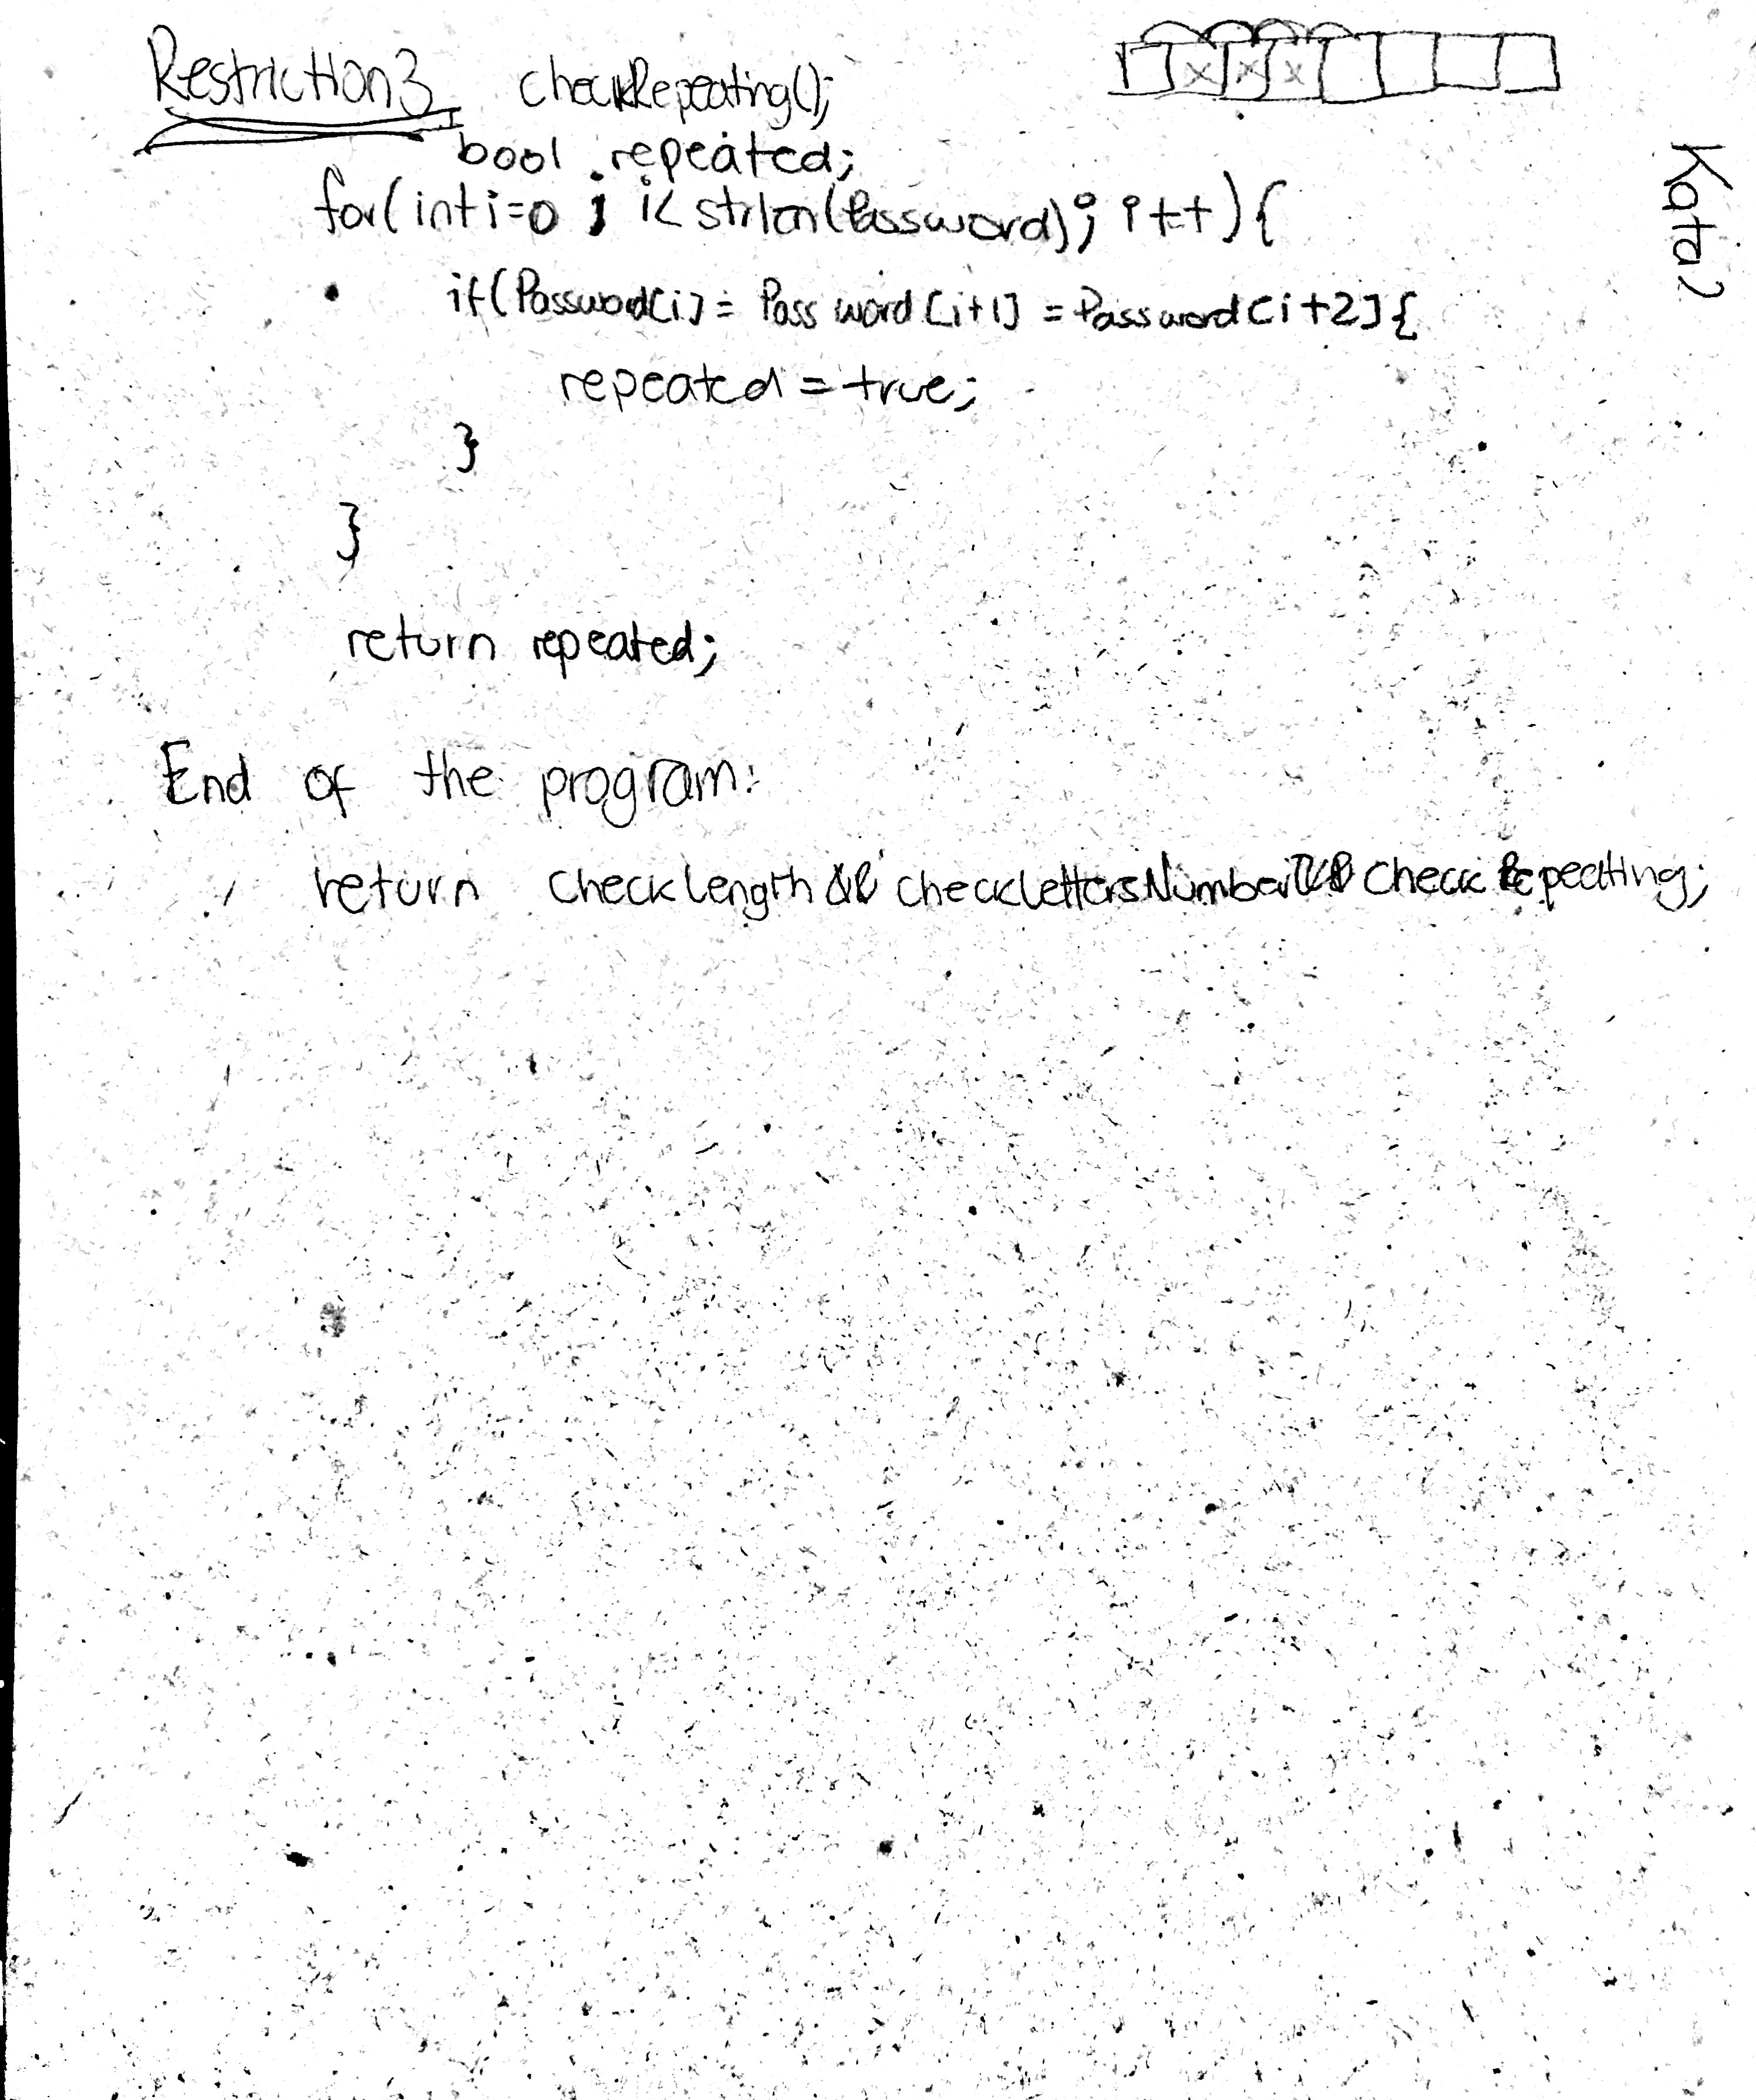 Restriction3 checkRepeating();
bool repeated;
for(int i=0 ; i< strlen(Password); i++){
if(Password[i] = Password[i+1] = Password[i+2]{
repeated = true;
}
}
return repeated;
End of the program:
return checkLength && checkLettersNumber && CheckRepeating;
Kata2